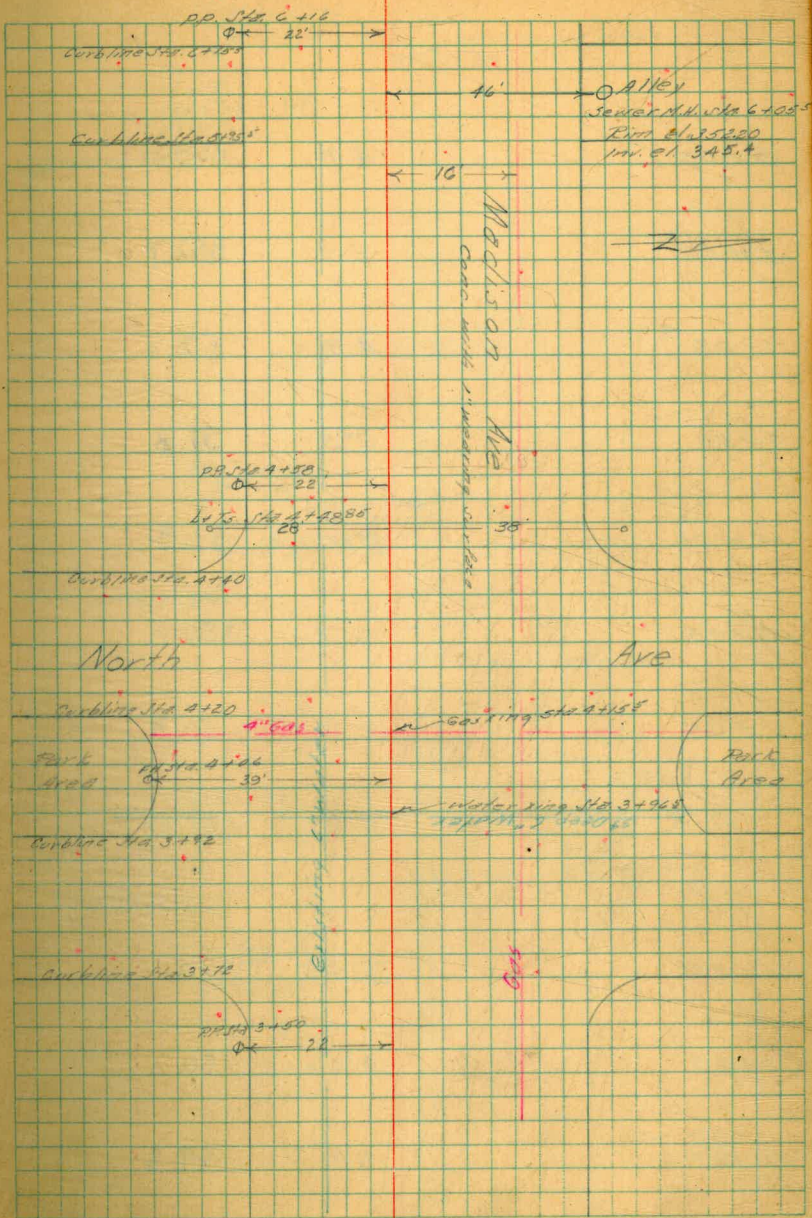 P.P. Sta. 6+16
22'
Curbline Sta. 6+15⁵
46'
Alley
Sewer M.H. Sta 6+05⁵
Rim el. 352.20
Inv. el. 345.4
Curbline Sta 5+95⁵
16
N
Madison Ave
Conc. with 1" wearing surface
P.P. Sta 4+58
22
Sta. 4+48⁸⁵
28
38
Curbline Sta. 4+40
North Ave
Curbline Sta. 4+20
4" Gas
Gas xing Sta 4+15⁵
Park
Area
P.P. Sta. 4+06
39'
Park
Area
Water xing Sta. 3+96⁵
Deep 6" Water
Curbline Sta 3+92
Existing
Gas
Curbline Sta 3+72
P.P. Sta 3+50
22